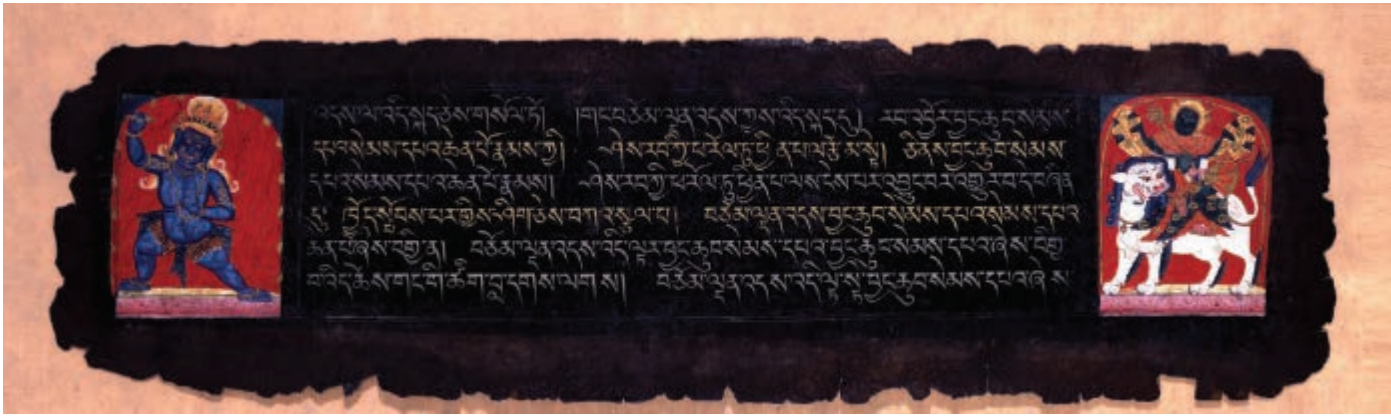 འདས་ལ་འདི་སྐད་ཅེས་གསོལ་ཏོ། །གང་བཅོམ་ལྡན་འདས་ཀྱིས་འདི་སྐད་དུ། རབ་འབྱོར་བྱང་ཆུབ་སེམས་
དཔའ་སེམས་དཔའ་ཆེན་པོ་རྣམས་ཀྱི། ཤེས་རབ་ཀྱི་ཕ་རོལ་ཏུ་ཕྱིན་པ་ལས་བརྩམས་ཏེ། ཅི་ནས་བྱང་ཆུབ་སེམས་
དཔའ་སེམས་དཔའ་ཆེན་པོ་རྣམས། ཤེས་རབ་ཀྱི་ཕ་རོལ་ཏུ་ཕྱིན་པ་ལས་ངེས་པར་འབྱུང་བར་འགྱུར་བ་དེ་བཞིན་
དུ་ ཁྱོད་སྤོབས་པར་གྱིས་ཤིག་ཅེས་བཀའ་སྩལ་པ། བཅོམ་ལྡན་འདས་བྱང་ཆུབ་སེམས་དཔའ་སེམས་དཔའ་
ཆེན་པོ་ཞེས་བགྱི་ན། བཅོམ་ལྡན་འདས་འདི་ལྟར་བྱང་ཆུབ་སེམས་དཔའ་བྱང་ཆུབ་སེམས་དཔའ་ཞེས་བགྱི་
བ་འདི་ཆོས་གང་གི་ཚིག་བླ་དགས་ལགས། བཅོམ་ལྡན་འདས་འདི་ལྟ་སྟེ་བྱང་ཆུབ་སེམས་དཔའ་ཞེས་